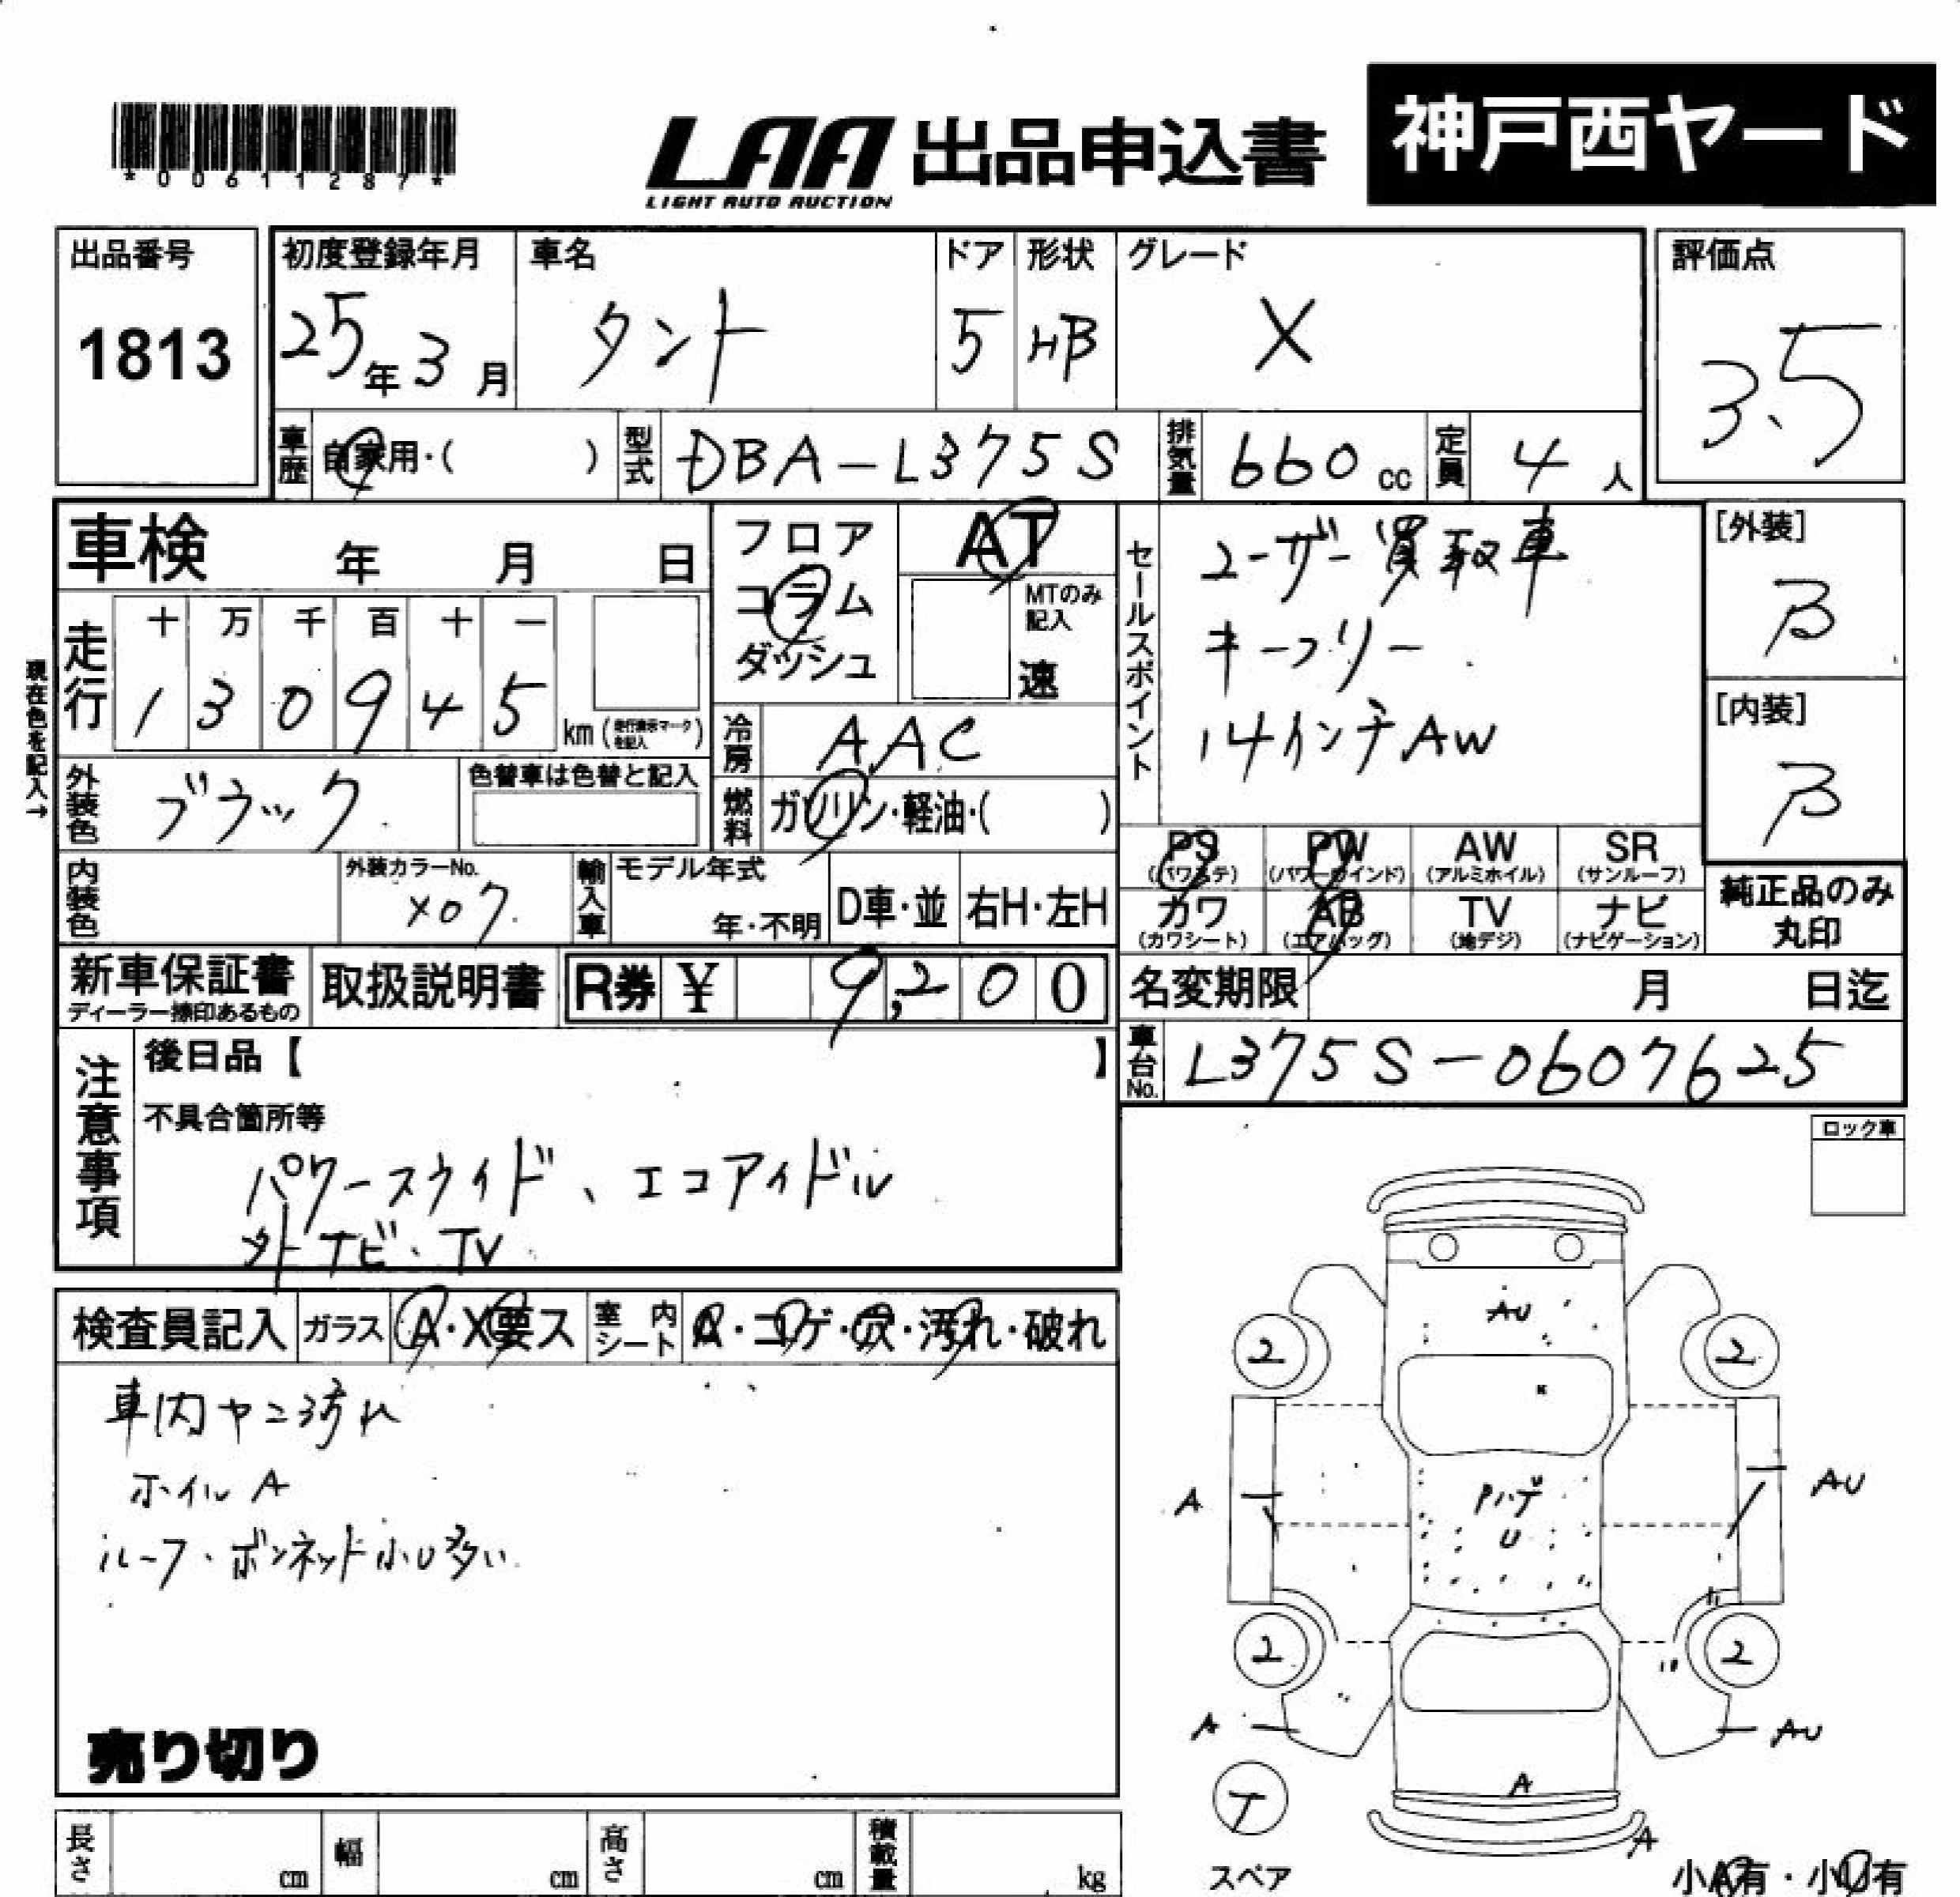 *00611287*
LAA 出品申込書 神戸西ヤード
LIGHT AUTO AUCTION
出品番号 初度登録年月 車名 ドア 形状 グレード 評価点
1813 25年3月 タント 5 HB X 3.5
車歴 自家用・( ) 型式 DBA-L375S 排気量 660cc 定員 4人
車検 年 月 日
フロア
コラム
ダッシュ
AT
MTのみ記入
速
セールスポイント
ユーザー買取車
キーフリー
14インチAW
[外装]
B
[内装]
B
現在色を記入→
走行 十 万 千 百 十 一
1 3 0 9 4 5 km(走行表示マークを記入)
冷房 AAC
外装色 ブラック 色替車は色替と記入
燃料 ガソリン・軽油・( )
PS PW AW SR
(パワステ) (パワーウインド) (アルミホイル) (サンルーフ)
カワ AB TV ナビ
(カワシート) (エアバッグ) (地デジ) (ナビゲーション)
純正品のみ
丸印
内装色 外装カラーNo. X07 輸入車 モデル年式 年・不明 D車・並 右H・左H
新車保証書 取扱説明書 R券 ¥ 9,200
ディーラー捺印あるもの
名変期限 月 日迄
車台No. L375S-0607625
注意事項
後日品【 】
不具合箇所等
パワースライド、エコアイドル
外ナビ、TV
ロック車
検査員記入 ガラス A・X要ス 室内シート A・コゲ・穴・汚れ・破れ
車内ヤニ汚れ
ホイルA
ルーフ・ボンネット小U多い
売り切り
AU
2 2
A AU
U
2 2
A AU
A
T
A
スペア
小A有・小U有
長さ cm 幅 cm 高さ cm 積載量 kg